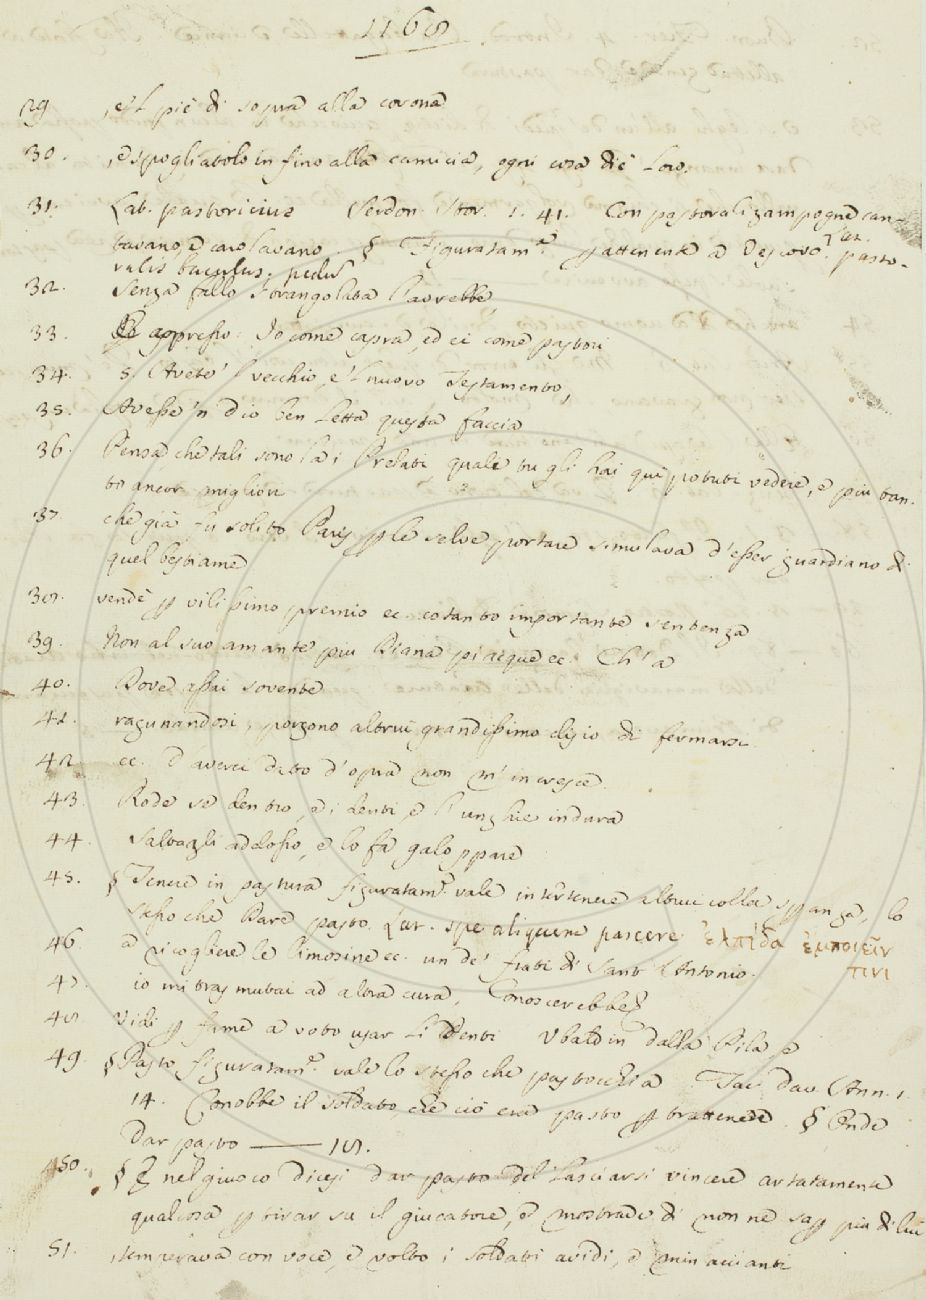 1168
29 , e 'l piè di sopra alla corona
30. , e spogliatolo in fino alla camicia, ogni cosa diè loro.
31. Lat. pastoricius Serdon. Stor. 1. 41. Con pastorali zampogne can-
tavano, e carolavano. § Figuratam.e attenente a Vescovo. Lat. pasto-
ralis baculus, pedum
32. senza fallo strangolata l'avrebbe
33. E appresso: Io come capra, ed ei come pastori
34. S' Avete 'l vecchio, e 'l nuovo Testamento,
35. Avesse 'n Dio ben letta questa faccia
36. Pensa che tali sono là i Prelati, quale tu gli hai quì potuti vedere, e più tan-
to ancor migliori
37. che già fù solito Paris p le selve portare simulava d'esser guardiano di
quel bestiame
38. vendè p vilissimo premio ec. cotanto importante sentenza
39. Non al suo amante più Diana piacque ec. Ch' a
40. Dove assai sovente
41. ragunandosi, porgono altrui grandissimo disio di fermarsi
42 ec. D' averci dato d' opra non m' incresce
43. Rode se dentro, e i denti, e l' unghie indura
44. saltagli adosso, e lo fa galoppare
45. § Tenere in pastura figuratam.e vale intertenere altrui colla speranza, lo
stesso che Dare pasto. Lat. spe aliquem pascere ἐλπίδα ἐμποιεῖν
τινι
46. a ricogliere le limosine ec. un de' frati di Sant' Antonio.
47. io mi trasmutai ad altra cura,
48. Vidi p fame a voto usar li denti Ubaldin dalla Pila, e
49. § Pasto figuratam.e vale lo stesso che pastocchia Tac. Dav. Ann. 1.
14. Conobbe il soldato che ciò era pasto p trattenere. § Onde
Dar pasto —— 18.
50. § E nel giuoco dicesi dar pasto del lasciarsi vincere artatamente
qualcosa p tirar su il giucatore, e mostrare di non ne sap più di lui
51. , temperava con voce, e volto i soldati avidi, e minaccianti